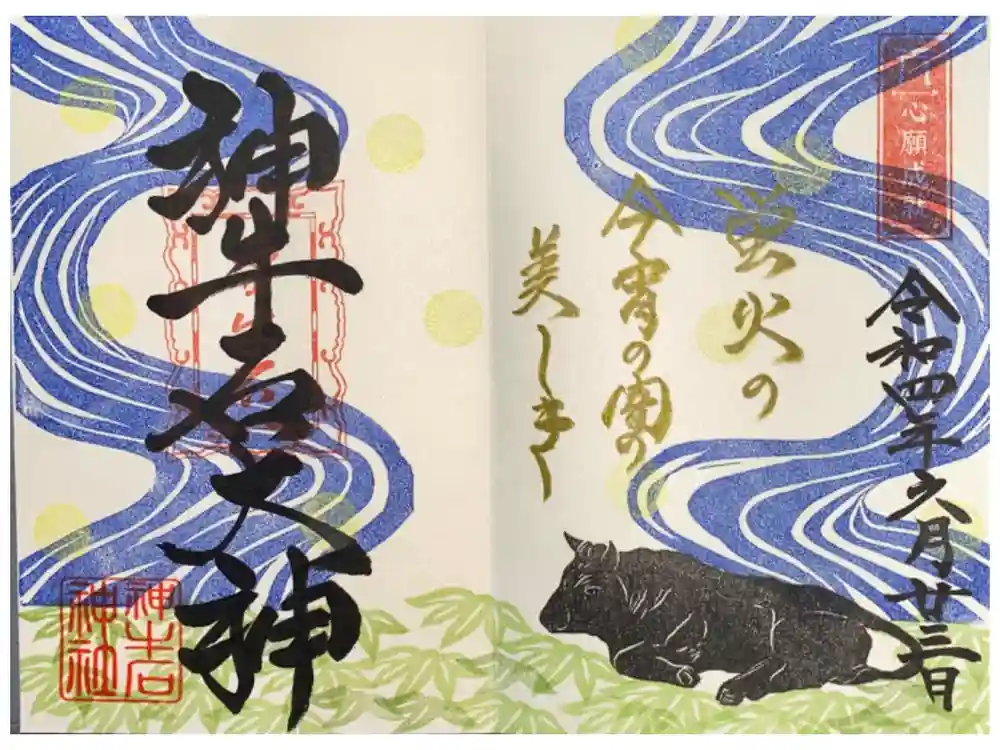 心願成就
令和四年六月廿三日
蛍火の
今宵の闇の
美しき
神牛石大神
神牛石
神社